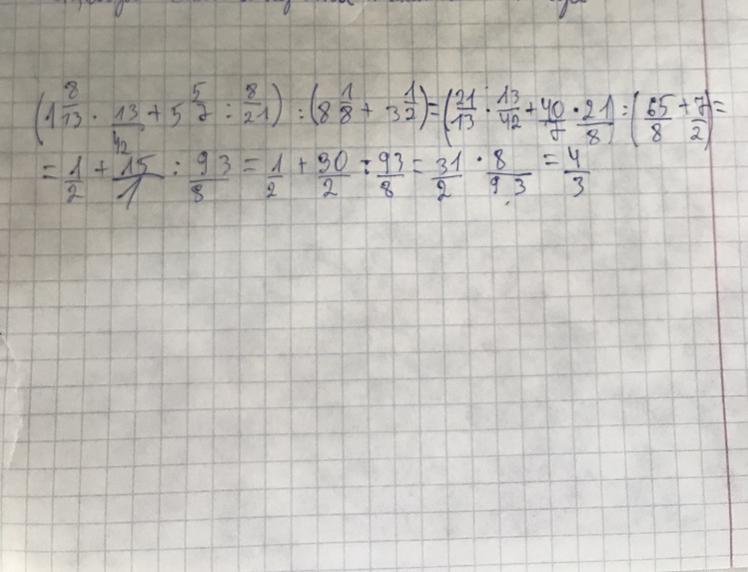 (1 8/13 · 13/42 + 5 5/7 : 8/21) : (8 1/8 + 3 1/2) = (21/13 · 13/42 + 40/7 · 21/8) : (65/8 + 7/2) =
= 1/2 + 15/1 : 93/8 = 1/2 + 30/2 : 93/8 = 31/2 · 8/93 = 4/3